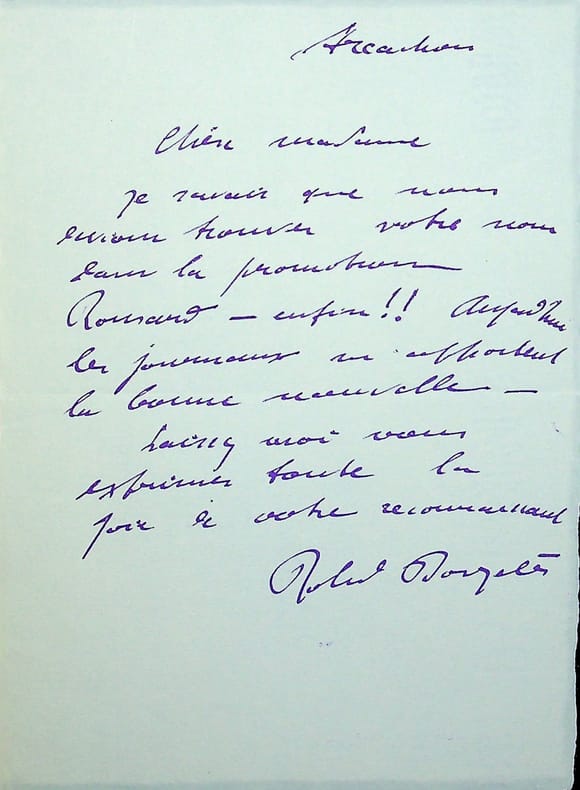 Arcachon
Chère madame
je savais que nous
devions trouver votre nom
dans la promotion
Ronsard — enfin !! Aujourd'hui
les journaux m'apportent
la bonne nouvelle —
Laissez moi vous
exprimer toute la
joie de votre reconnaissant
Roland Dorgelès